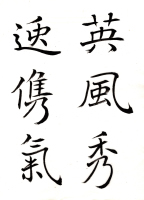 英風秀
儁氣